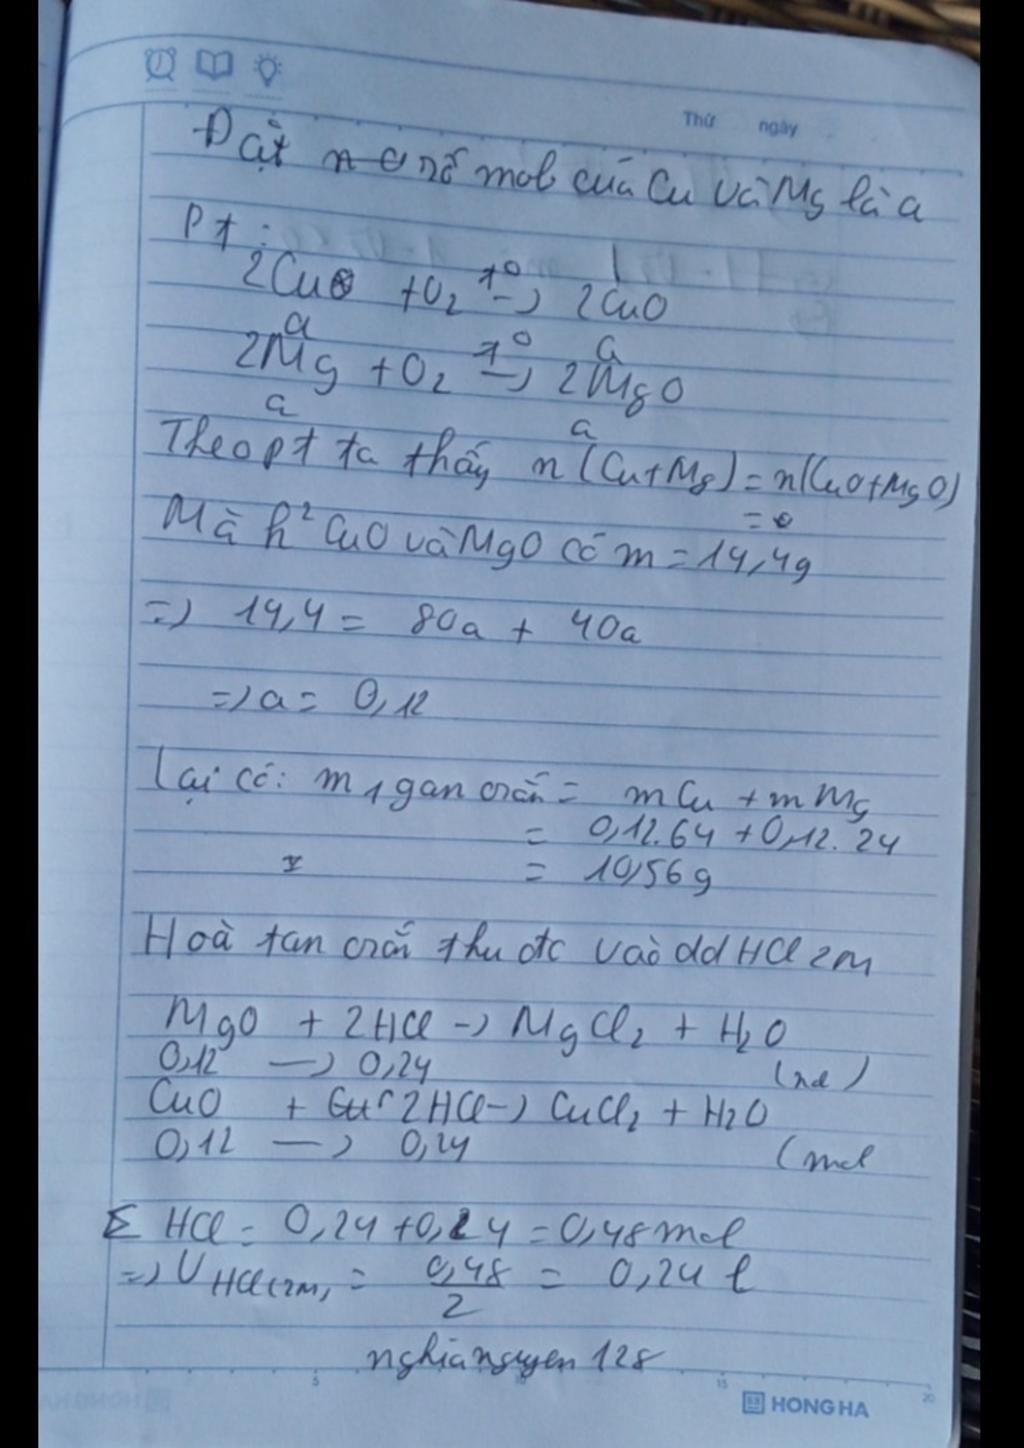 Thứ ngày
Đặt số mol của Cu và Mg là a
Pt:
2Cu + O2 t° -> 2CuO
a a
2Mg + O2 t° -> 2MgO
a a
Theo pt ta thấy n(Cu+Mg) = n(CuO+MgO)
=
Mà h² CuO và MgO có m = 14,4g
=> 14,4 = 80a + 40a
=> a = 0,12
Lại có: m1gam rắn = mCu + mMg
= 0,12.64 + 0,12.24
= 10,56g
Hoà tan rắn thu đc vào dd HCl 2M
MgO + 2HCl -> MgCl2 + H2O
0,12 -> 0,24 (mol)
CuO + 2HCl -> CuCl2 + H2O
0,12 -> 0,24 (mol
Σ HCl = 0,24 + 0,24 = 0,48 mol
=> VHCl(2M) = 0,48/2 = 0,24 l
nghianguyen 128
5 10 15 20
HONG HA